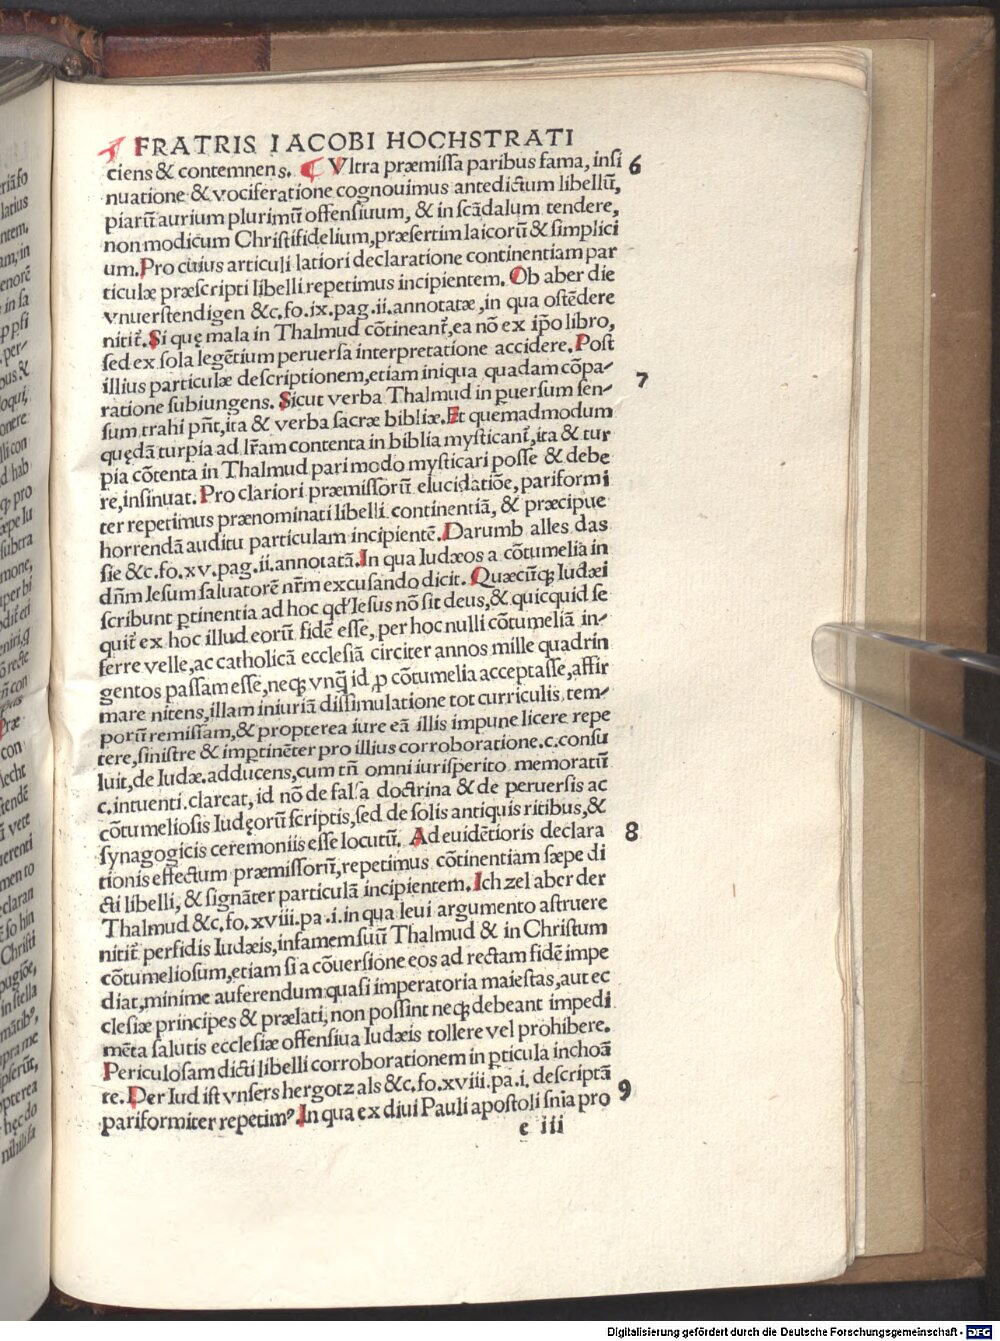 FRATRIS IACOBI HOCHSTRATI
ciens & contemnens. ¶ Vltra præmissa paribus fama, insi 6
nuatione & vociferatione cognouimus antedictum libellū,
piarū aurium plurimū offensiuum, & in scādalum tendere,
non modicum Christifidelium, præsertim laicorū & simplici
um. Pro cuius articuli latiori declaratione continentiam par
ticulæ præscripti libelli repetimus incipientem. Ob aber die
vnuerstendigen &c. fo. ix. pag. ii. annotatæ, in qua ostēdere
nitit̄. Si quę mala in Thalmud cōtineant̄, ea nō ex ip̄o libro,
sed ex sola legētium peruersa interpretatione accidere. Post
illius particulæ descriptionem, etiam iniqua quadam cōpa- 7
ratione subiungens. Sicut verba Thalmud in puersum sen-
sum trahi pn̄t, ita & verba sacræ bibliæ. Et quemadmodum
quędā turpia ad lr̄am contenta in biblia mysticant̄, ita & tur
pia cōtenta in Thalmud pari modo mysticari posse & debe
re, insinuat. Pro clariori præmissorū elucidatiōe, pariformi
ter repetimus prænominati libelli continentiā, & præcipue
horrendā auditu particulam incipientē. Darumb alles das
sie &c. fo. xv. pag. ii. annotatā. In qua Iudæos a cōtumelia in
dn̄m Iesum saluatorē nr̄m excusando dicit. Quæcūq; Iudæi
scribunt ptinentia ad hoc qd' Iesus nō sit deus, & quicquid se
quit̄ ex hoc illud eorū fidē esse, per hoc nulli cōtumeliā in-
ferre velle, ac catholicā ecclesiā circiter annos mille quadrin
gentos passam esse, neq; vnq̄ id p cōtumelia acceptasse, affir
mare nitens, illam iniuriā dissimulatione tot curriculis tem-
porū remissam, & propterea iure eā illis impune licere repe
tere, sinistre & imptinēter pro illius corroboratione. c. consu
luit, de Iudæ. adducens, cum tn̄ omni iurisperito memoratū
c. intuenti. clareat, id nō de falsa doctrina & de peruersis ac
cōtumeliosis Iudęorū scriptis, sed de solis antiquis ritibus, &
synagogicis ceremoniis esse locutū. Ad euidētioris declara 8
tionis effectum præmissorū, repetimus cōtinentiam sæpe di
cti libelli, & signāter particulā incipientem. Ich zel aber der
Thalmud &c. fo. xviii. pa. i. in qua leui argumento astruere
nitit̄ perfidis Iudæis, infamem suū Thalmud & in Christum
cōtumeliosum, etiam si a cōuersione eos ad rectam fidē impe
diat, minime auferendum: quasi imperatoria maiestas, aut ec
clesiæ principes & prælati, non possint neq; debeant impedi
mēta salutis ecclesiæ offensiua Iudæis tollere vel prohibere.
Periculosam dicti libelli corroborationem in pticula inchoā
te. Der Iud ist vnsers hergotz als &c. fo. xviii. pa. i. descriptā 9
pariformiter repetimꝰ. In qua ex diui Pauli apostoli sn̄ia pro
e iii
Digitalisierung gefördert durch die Deutsche Forschungsgemeinschaft - DFG